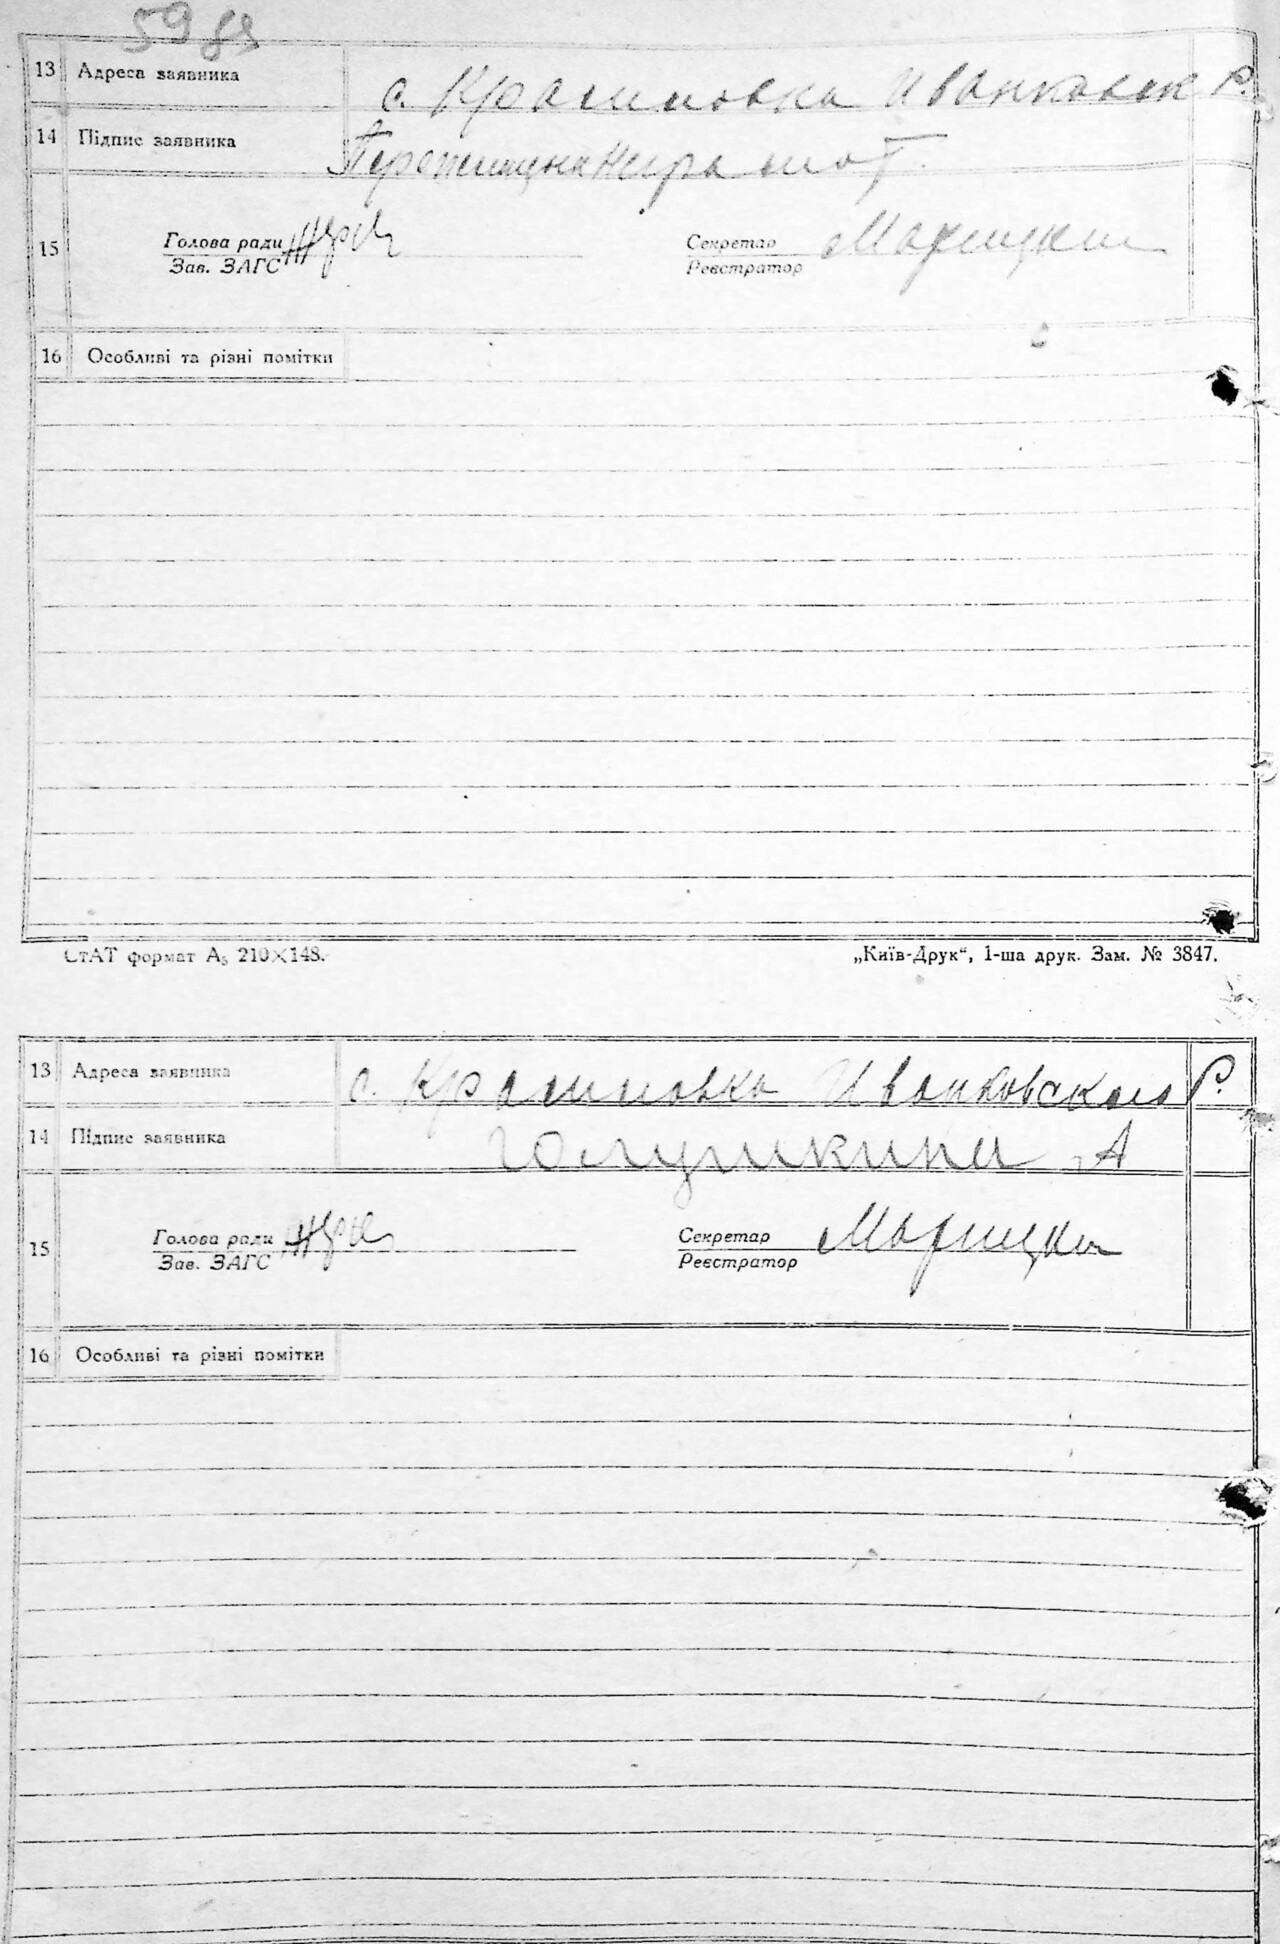 59
13 Адреса заявника с. Красиловка Иванковск Р.
14 Підпис заявника неграмот.
15 Голова ради Секретар Марицкий
Зав. ЗАГС Реєстратор
16 Особливі та різні помітки
СтАТ формат А₅ 210×148. „Київ-Друк“, 1-ша друк. Зам. № 3847.
13 Адреса заявника с. Красиловка Иванковского Р.
14 Підпис заявника Голушкина А
15 Голова ради Секретар Марицки
Зав. ЗАГС Реєстратор
16 Особливі та різні помітки